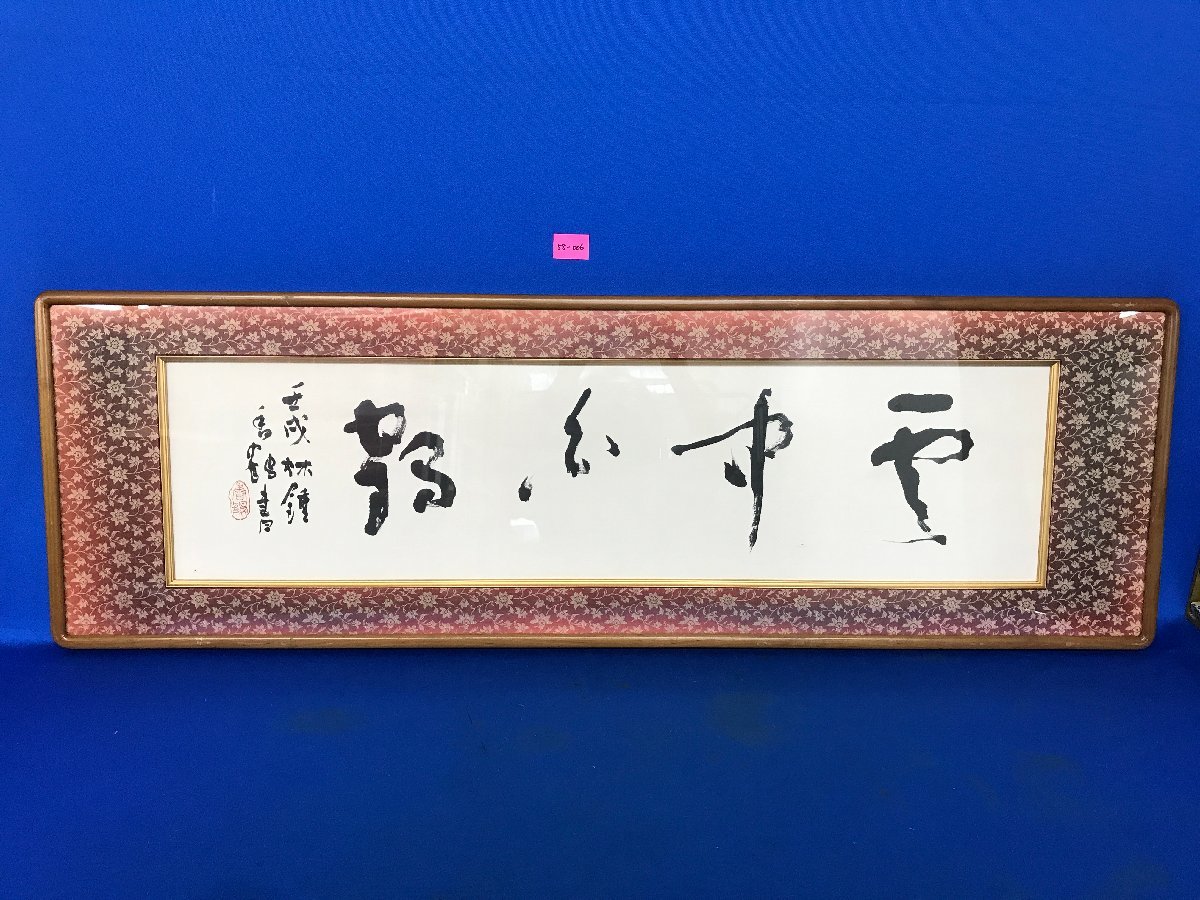 58-006
雲中白鶴
壬戌林鐘
書